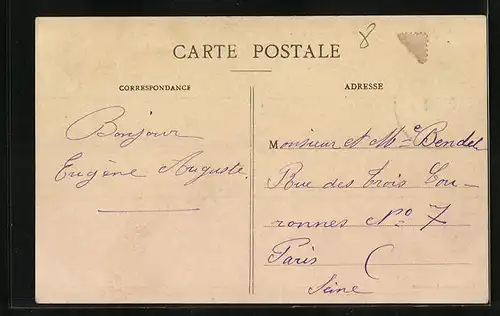 8
CARTE POSTALE
CORRESPONDANCE
ADRESSE
Bonjour
Eugène Auguste
Monsieur et Mme Bendel
Rue des Trois Cou-
ronnes No 7
Paris (
Seine